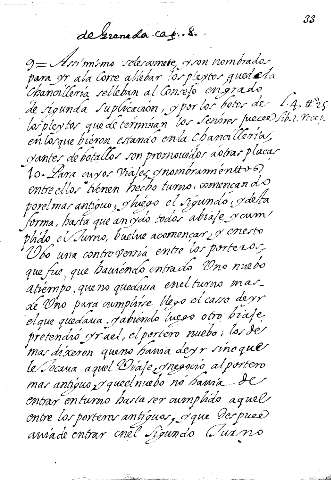 33
de Granada cap. 8.
9= Assimimo seles comete, y son nombrados
para yr a la Corte allebar los pleytos, que de la
Chancilleria, se lleban al Consejo en grado
de segunda suplicacion, y por los botos de
los pleytos que determinan los Señores jueces
en los que bieron estando en la Chancilleria,
y antes de botallos son promouidos a otras plaças
10. Para cuyos Viajes, y nombramientos
entre ellos tienen hecho turno, començando
por el mas antiguo, y luego el segundo, y desta
forma, hasta que an ydo todos abiaje, y cum-
plido el turno, buelve acomençar, y en esto
Ubo una controversia entre los porteros,
que fue, que hauiendo entrado Uno nuebo
atiempo, que no quedaua en el turno mas
de Uno para cumplirse llego el caso de yr
el que quedaua, y abiendo luego otro biaje
pretendio yr a el, el portero nuebo; los de
mas dixeron que no hauia de yr sino que
le tocaua aquel Viaje, y negocio al portero
mas antiguo, y que el nuebo no hauia de
entrar en turno hasta ser cumplido aquel
entre los porteros antiguos, y que despues
auia de entrar en el segundo Turno